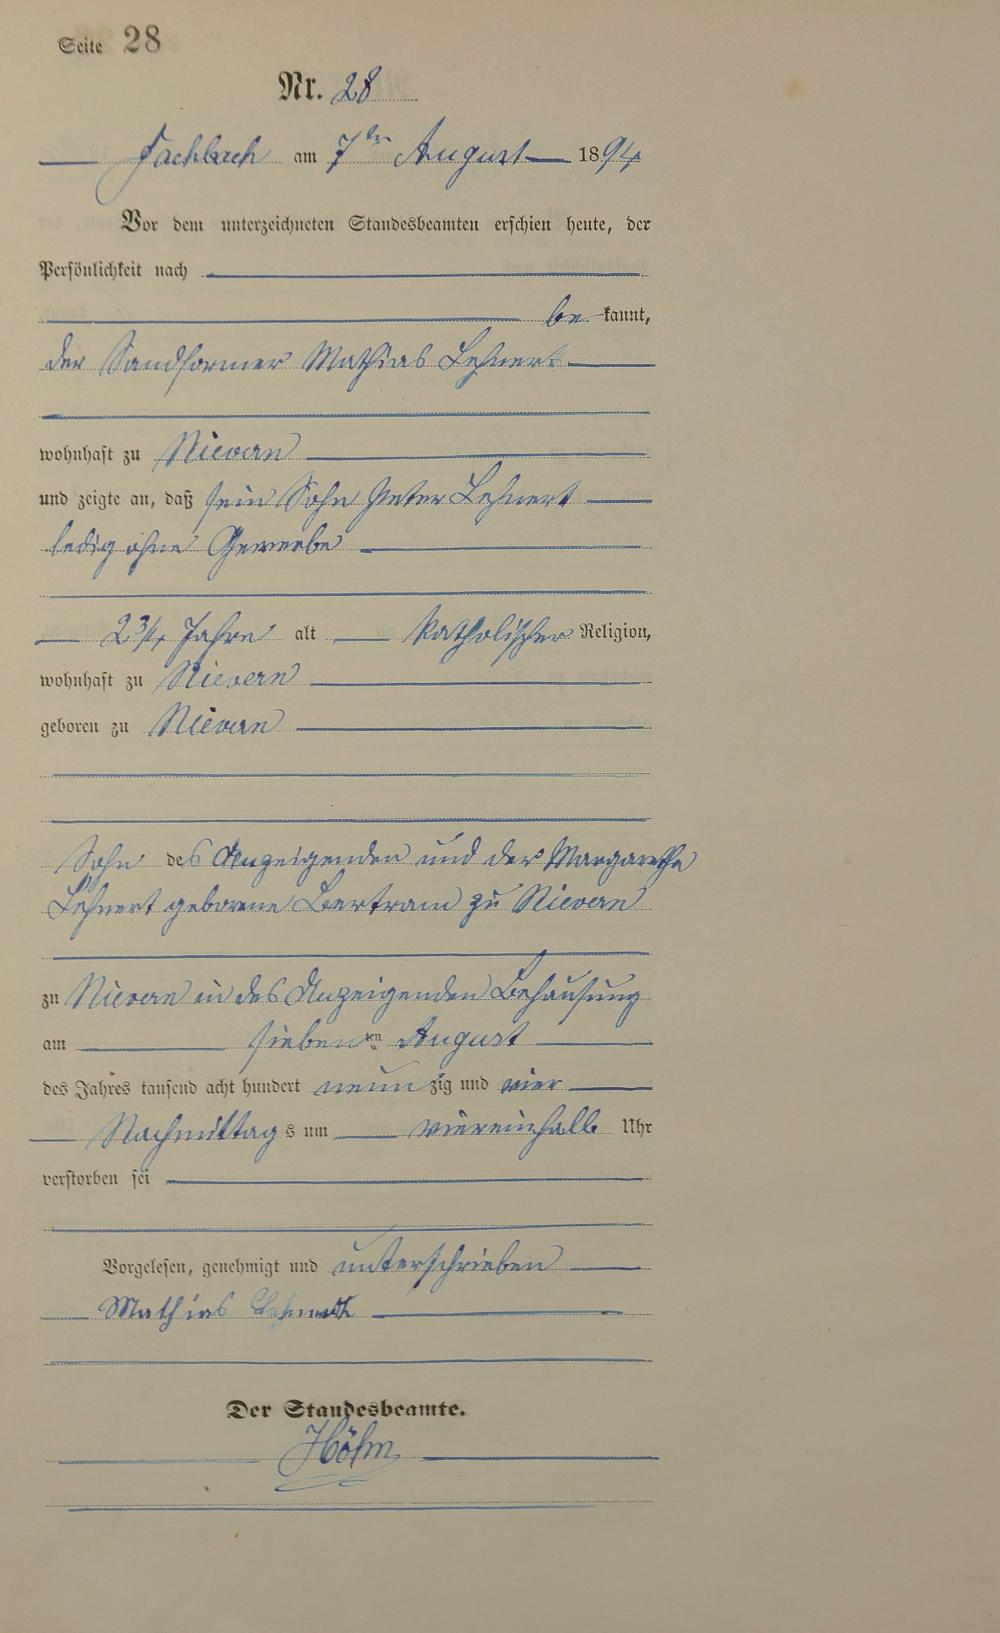 Seite 28
Nr. 28
Fachbach am 7ten August 1894
Vor dem unterzeichneten Standesbeamten erschien heute, der
Persönlichkeit nach
be kannt,
der Sandformer Mathias Lehnert
wohnhaft zu Nievern
und zeigte an, daß sein Sohn Peter Lehnert
ledig ohne Gewerbe
2 3/4 Jahre alt katholischer Religion,
wohnhaft zu Nievern
geboren zu Nievern
Sohn des Anzeigenden und der Margarethe
Lehnert geborene Bertram zu Nievern
zu Nievern in des Anzeigenden Behausung
am siebenten August
des Jahres tausend acht hundert neunzig und vier
Nachmittags um viereinhalb Uhr
verstorben sei
Vorgelesen, genehmigt und unterschrieben
Mathias Lehnert
Der Standesbeamte.